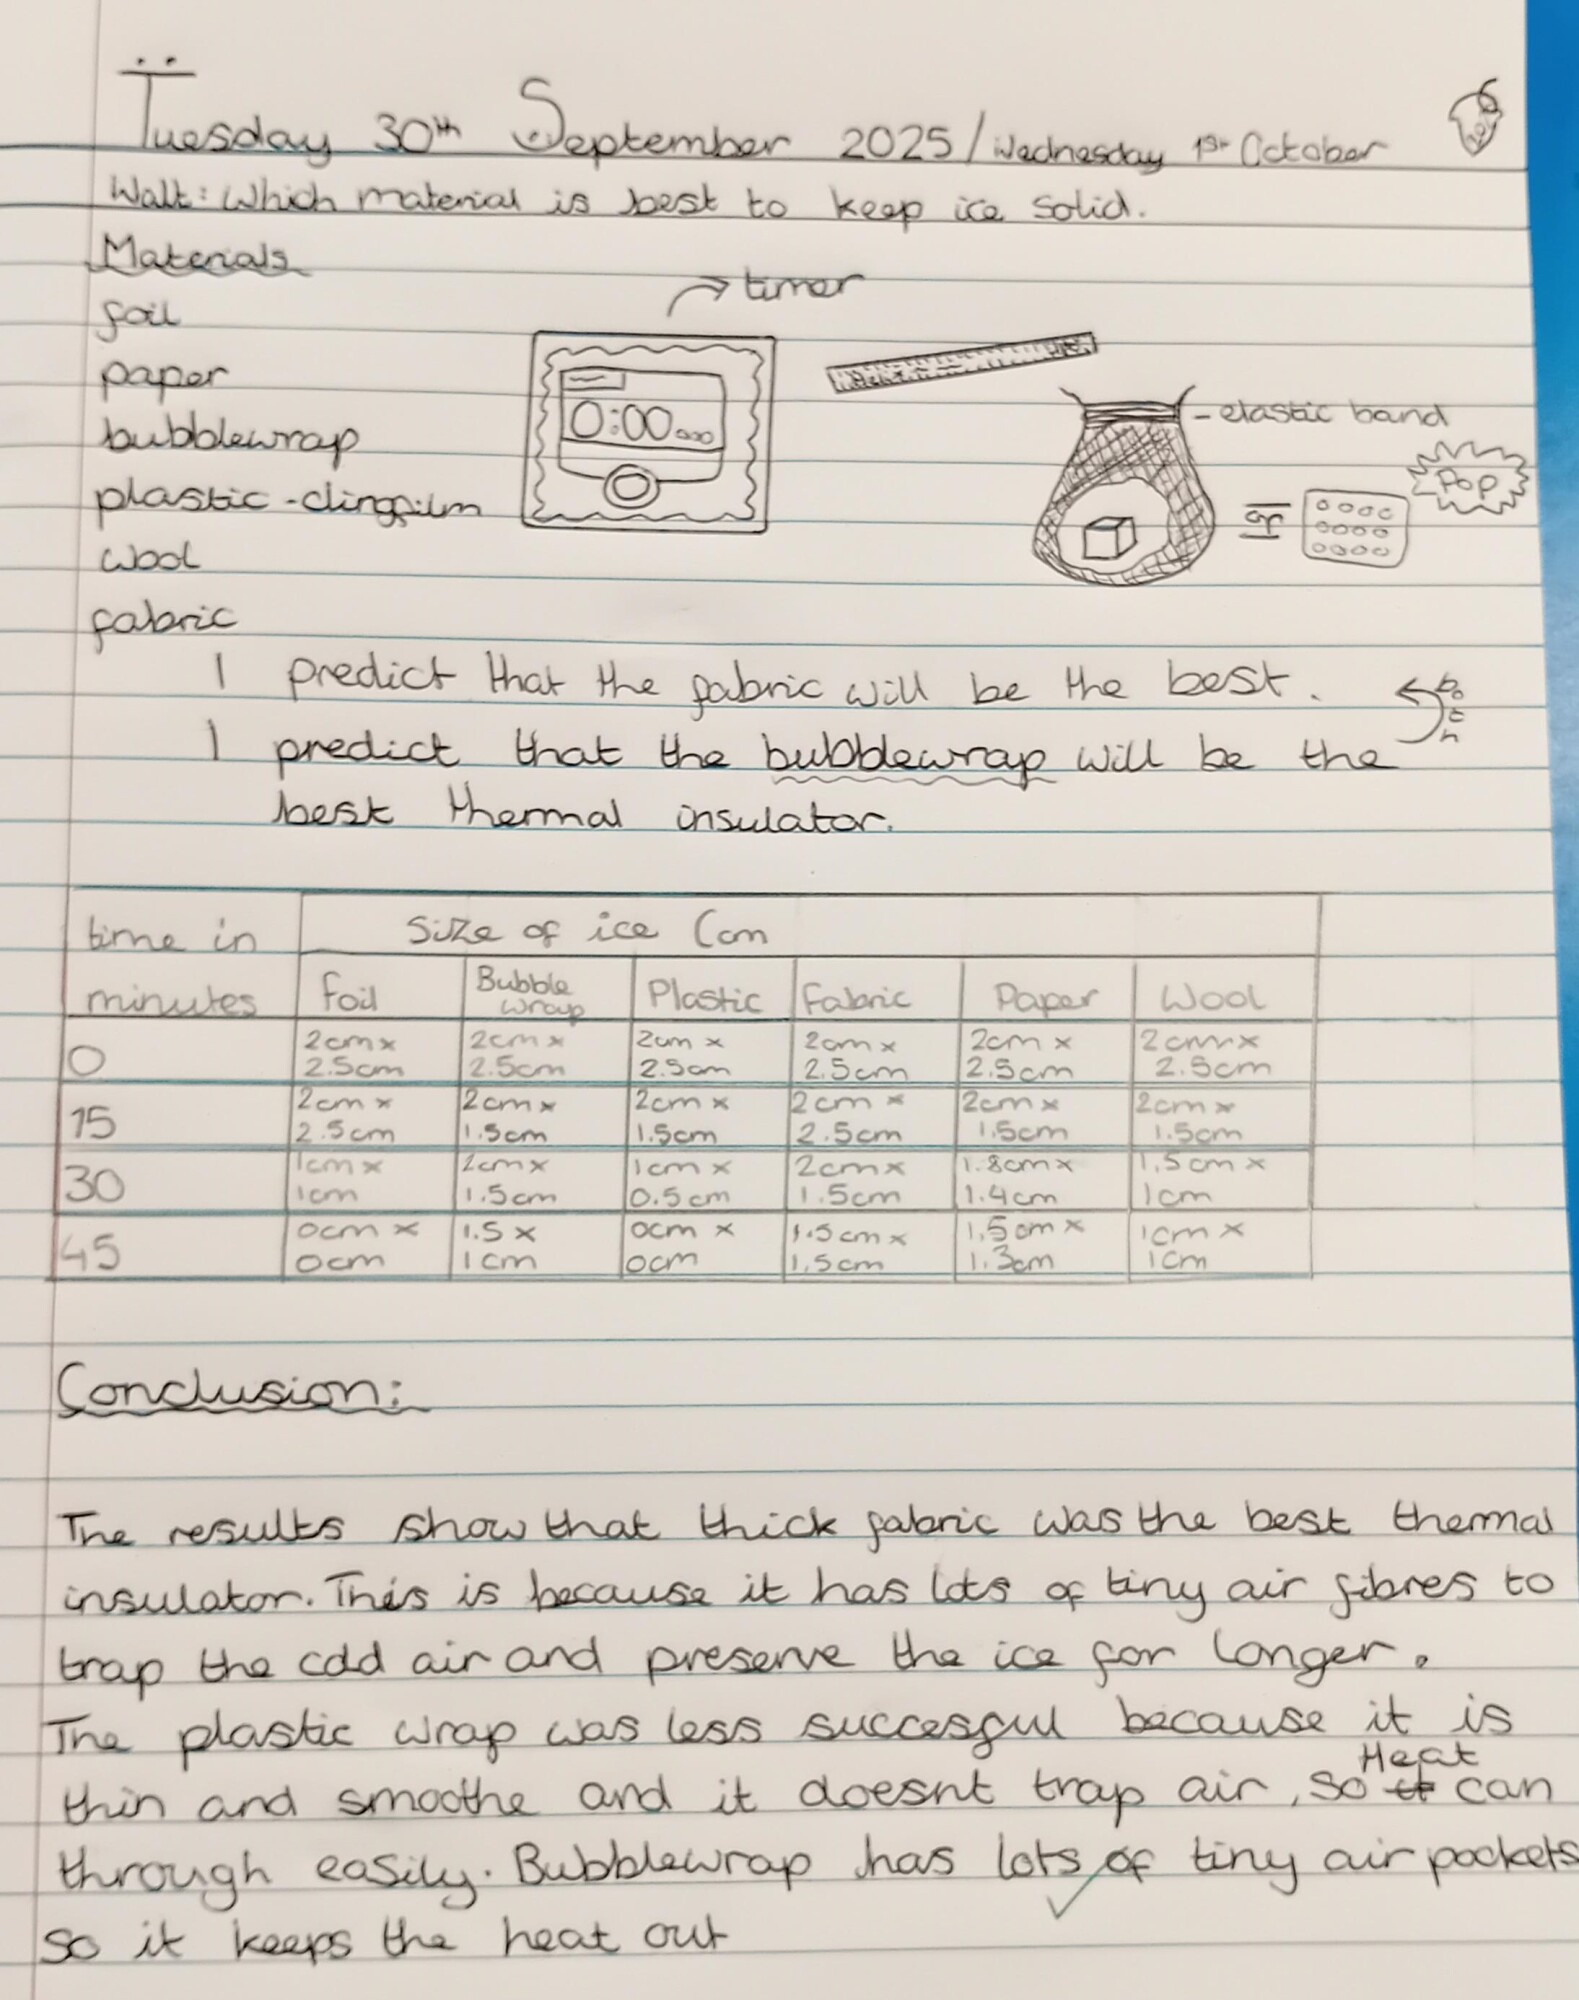 Tuesday 30th September 2025/Wednesday 1st October
Walt: Which material is best to keep ice solid.
Materials
foil
paper
bubblewrap
plastic - clingfilm
wool
fabric
timer
0:00
elastic band
or
Pop
I predict that the fabric will be the best.
I predict that the bubblewrap will be the
best thermal insulator.
both
time in minutes
Size of ice (cm
Foil Bubble wrap Plastic Fabric Paper Wool
0 2cm x 2.5cm 2cm x 2.5cm 2cm x 2.5cm 2cm x 2.5cm 2cm x 2.5cm 2cm x 2.5cm
15 2cm x 2.5cm 2cm x 1.5cm 2cm x 1.5cm 2cm x 2.5cm 2cm x 1.5cm 2cm x 1.5cm
30 1cm x 1cm 2cm x 1.5cm 1cm x 0.5cm 2cm x 1.5cm 1.8cm x 1.4cm 1.5cm x 1cm
45 0cm x 0cm 1.5 x 1cm 0cm x 0cm 1.5cm x 1.5cm 1.5cm x 1.3cm 1cm x 1cm
Conclusion:
The results show that thick fabric was the best thermal
insulator. This is because it has lots of tiny air fibres to
trap the cold air and preserve the ice for longer.
The plastic wrap was less succesful because it is
thin and smoothe and it doesnt trap air, so Heat can
through easily. Bubblewrap has lots of tiny air pockets
so it keeps the heat out